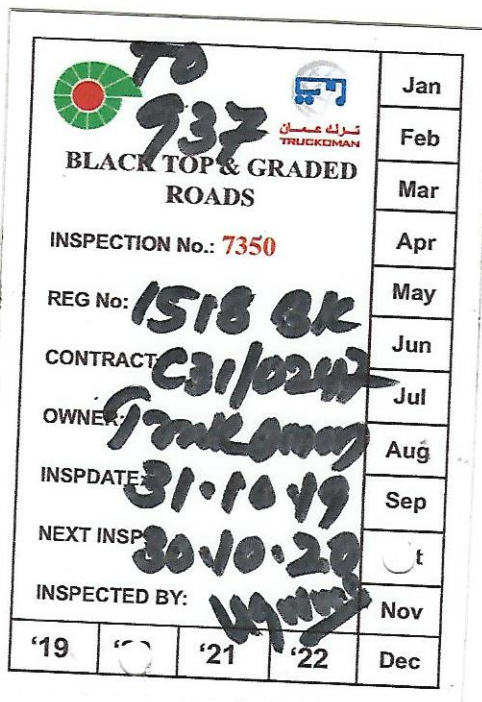 TO
937
ترك عمان
TRUCKOMAN
BLACK TOP & GRADED
ROADS
INSPECTION No.: 7350
REG No: 1518 BK
CONTRACT C31/0247
OWNER:
INSPDATE: 31.10.19
NEXT INSP 30.10.20
INSPECTED BY:
Jan
Feb
Mar
Apr
May
Jun
Jul
Aug
Sep
t
Nov
Dec
'19
'21
'22